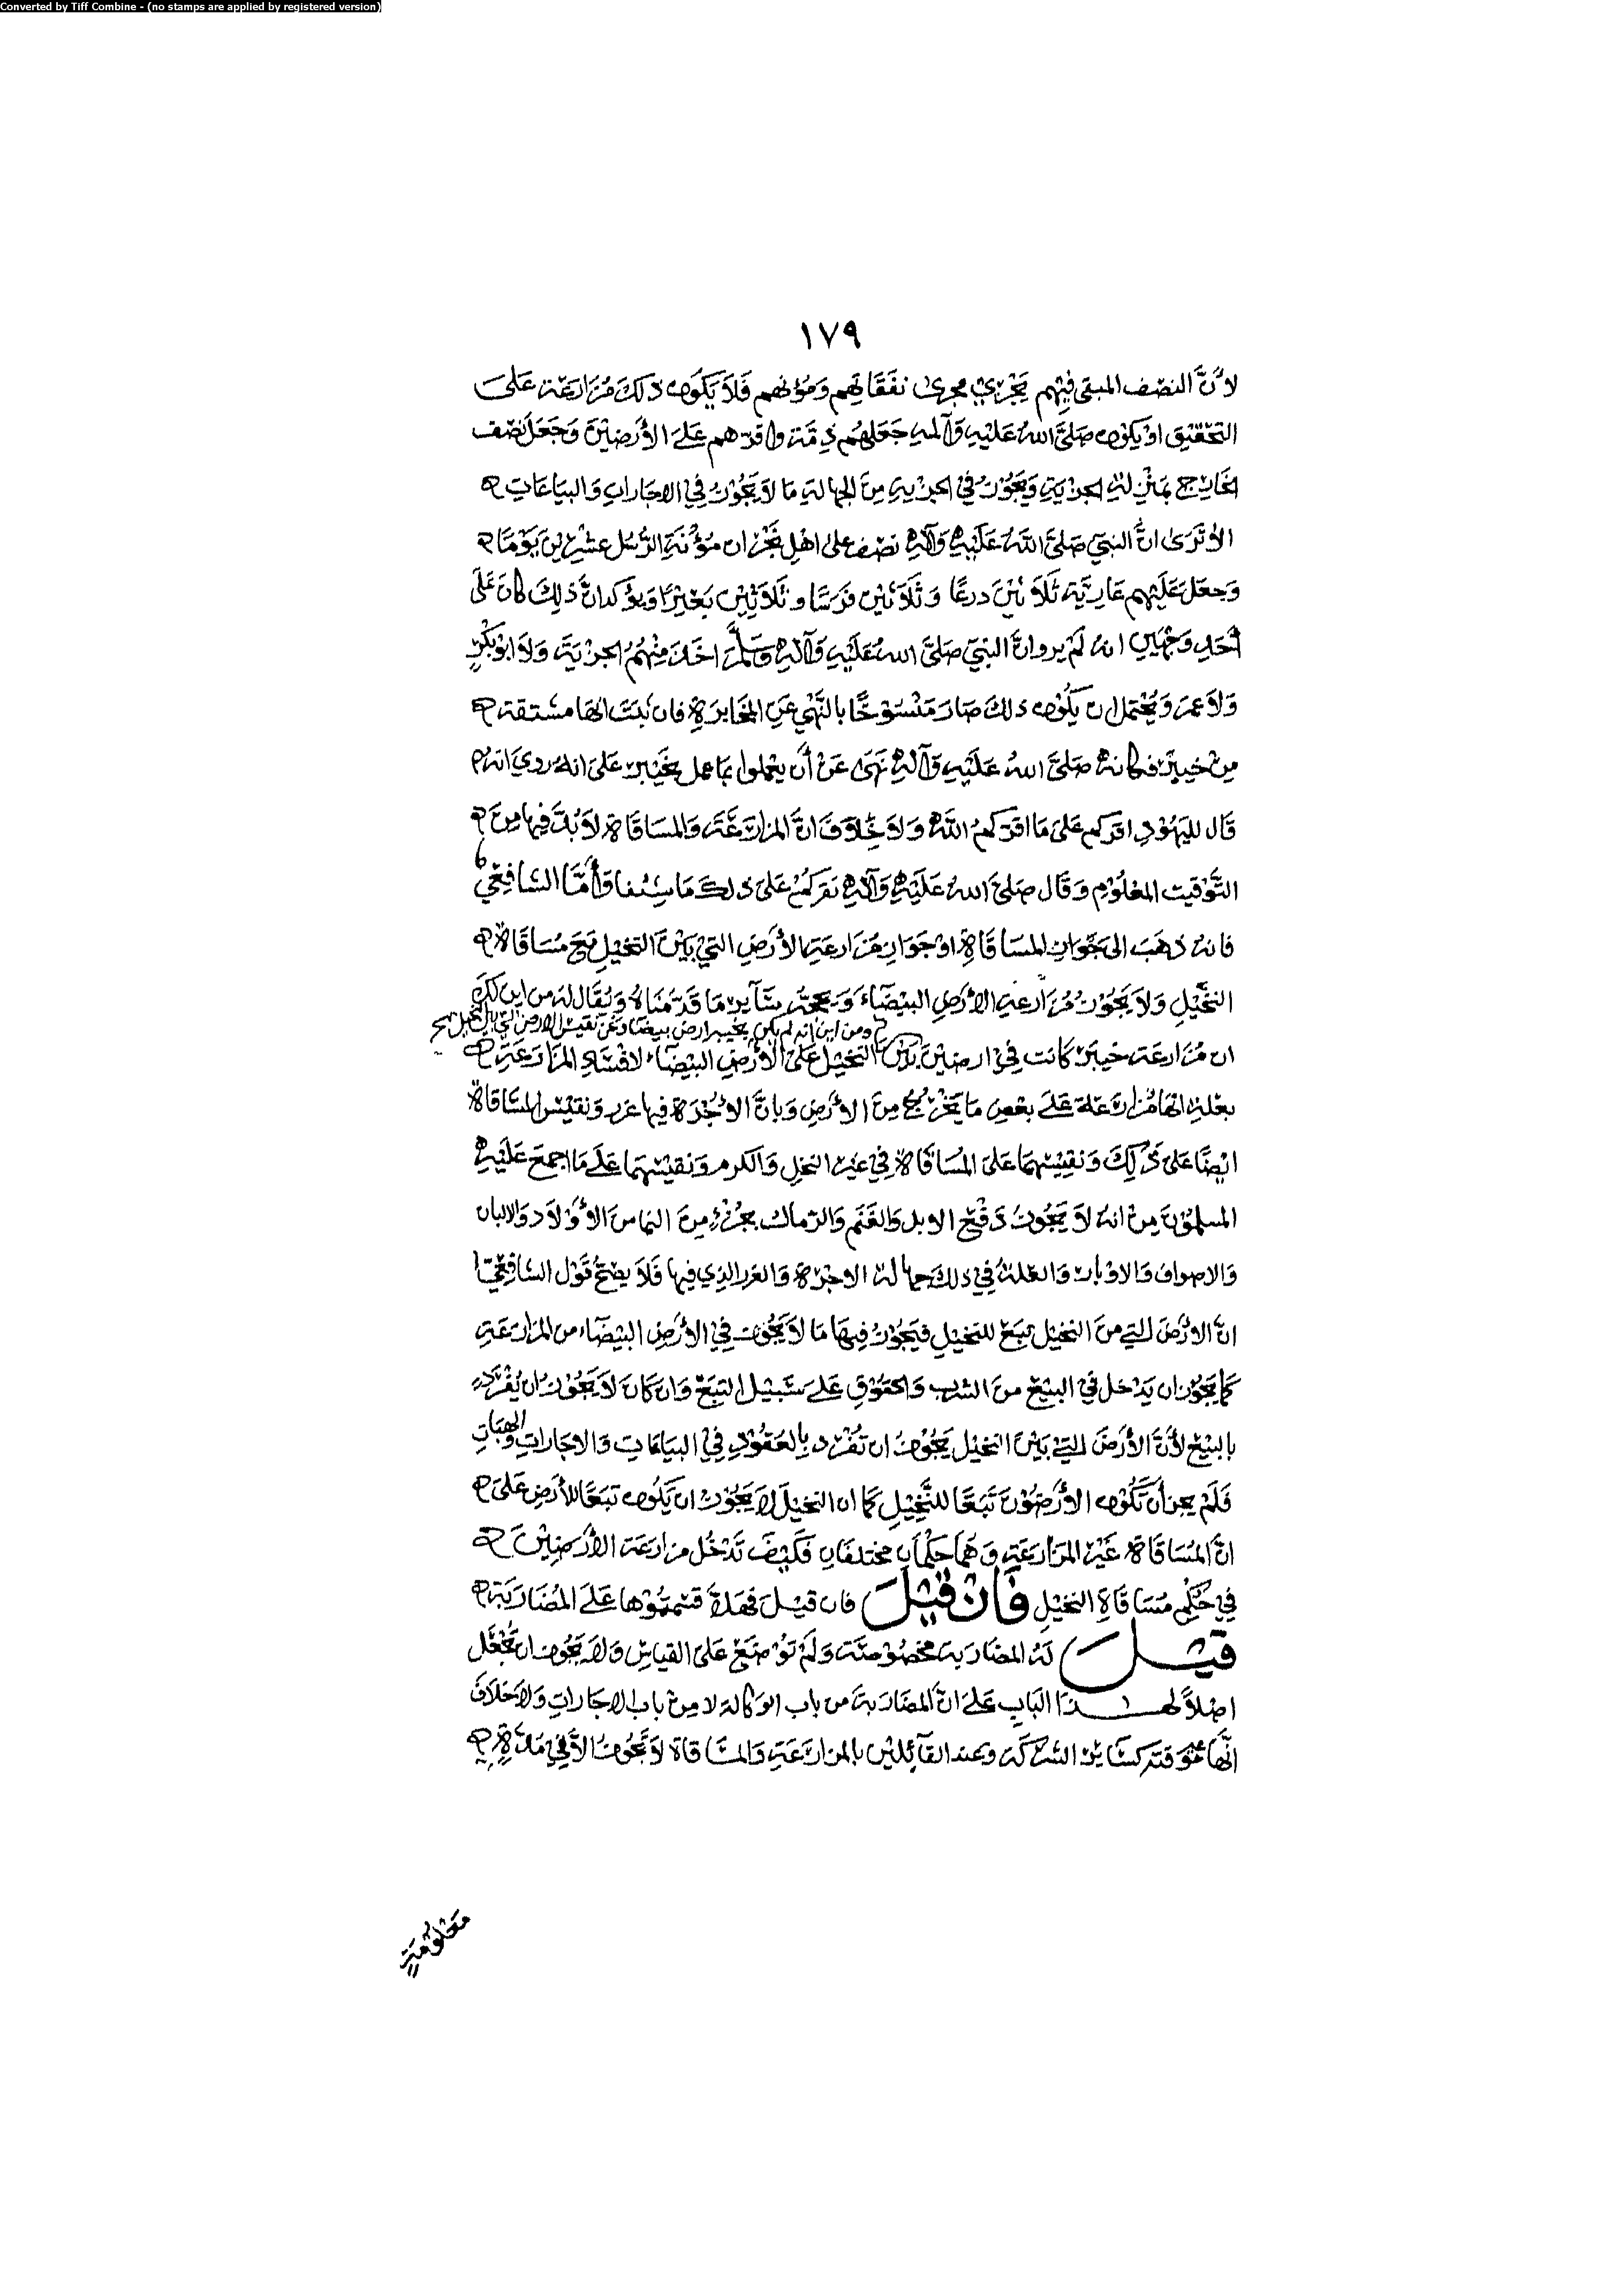 Converted by Tiff Combine - (no stamps are applied by registered version)
١٧٩
لأنَّ النصف المبقى فيهم يجري مجرى نفقاتهم ومؤنهم فلا يكون ذلك مزارعة على
التحقيق او يكون صلى الله عليه وآله جعلهم ذمة واقرهم على الأرضين وجعل نصف
الخارج بمنزلة الجزية ويجوز في الجزية من الجهالة ما لا يجوز في الاجارات والبياعات
الا ترى ان النبي صلى الله عليه وآله نصف على اهل نجران مؤنة الرسل عشرين يوما
وجعل عليهم عارية ثلاثين درعا وثلاثين فرسا وثلاثين بعيرا ويؤكد ان ذلك كان على
أحد وجهين انه لم يرو ان النبي صلى الله عليه وآله وسلم اخذ منهم الجزية ولا ابو بكر
ولا عمر ويحتمل ان يكون ذلك صار منسوخا بالنهي عن المخابرة فان ثبت انها مشتقة
من خيبر فكانه صلى الله عليه وآله نهى عن أن يعملوا بما عمل بخيبر على انه روي انه
قال لليهود اقركم على ما اقركم الله ولا خلاف ان المزارعة والمساقاة لا بد فيها من
التوقيت المعلوم وقال صلى الله عليه وآله نقركم على ذلك ما شئنا وأما الشافعي
فانه ذهب الى جواز المساقاة او جواز مزارعة الأرض التي بين النخيل مع مساقاة
النخيل ولا يجوز مزارعة الأرض البيضاء ويحجه سآير ما قدمناه ويقال له من اين لك
ومن اين انه لم يكن بخيبر ارض بيضاء ونحن نقيس الارض التي بين النخيل
ان مزارعة خيبر كانت في ارضين بين النخيل على الأرض البيضاء لافساد المزارعة
بعلة انها مزارعة على بعض ما يخرج من الأرض وبان الأجرة فيها غرر ونقيس المساقاة
ايضا على ذلك ونقيسهما على المساقاة في غير النخل والكرم ونقيسهما على ما اجمع عليه
المسلمون من انه لا يجوز دفع الابل والغنم والرماك بجزء من النماء من الأولاد والالبان
والاصواف والاوبار والعلة في ذلك جهالة الاجرة والغرر الذي فيها فلا يصح قول الشافعي
ان الأرض التي من النخيل تبع للنخيل فيجوز فيها ما لا يجوز في الأرض البيضاء من المزارعة
كما يجوز ان يدخل في البيع من الشرب والحقوق على سبيل التبع وان كان لا يجوز ان يفرد
بالبيع لأن الأرض التي بين النخيل يجوز ان تفرد بالعقود في البياعات والاجارات والهبات
فلم يجز أن تكون الأرضون تبعا للنخيل كما ان النخيل لا يجوز ان يكون تبعا للأرض على
ان المساقاة غير المزارعة وهما حكمان مختلفان فكيف تدخل مزارعة الأرضين
في حكم مساقاة النخيل فان قيل فان قيل فهلا قستموها على المضاربة
قيل له المضاربة مخصوصة ولم توضع على القياس ولا يجوز ان تجعل
اصلا لهذا الباب على ان المضاربة من باب الوكالة لا من باب الاجارات ولا خلاف
انها غير موقتة كسائر الشركة وعند القآئلين بالمزارعة والمساقاة لا تجوز الا في مدة
معلومة